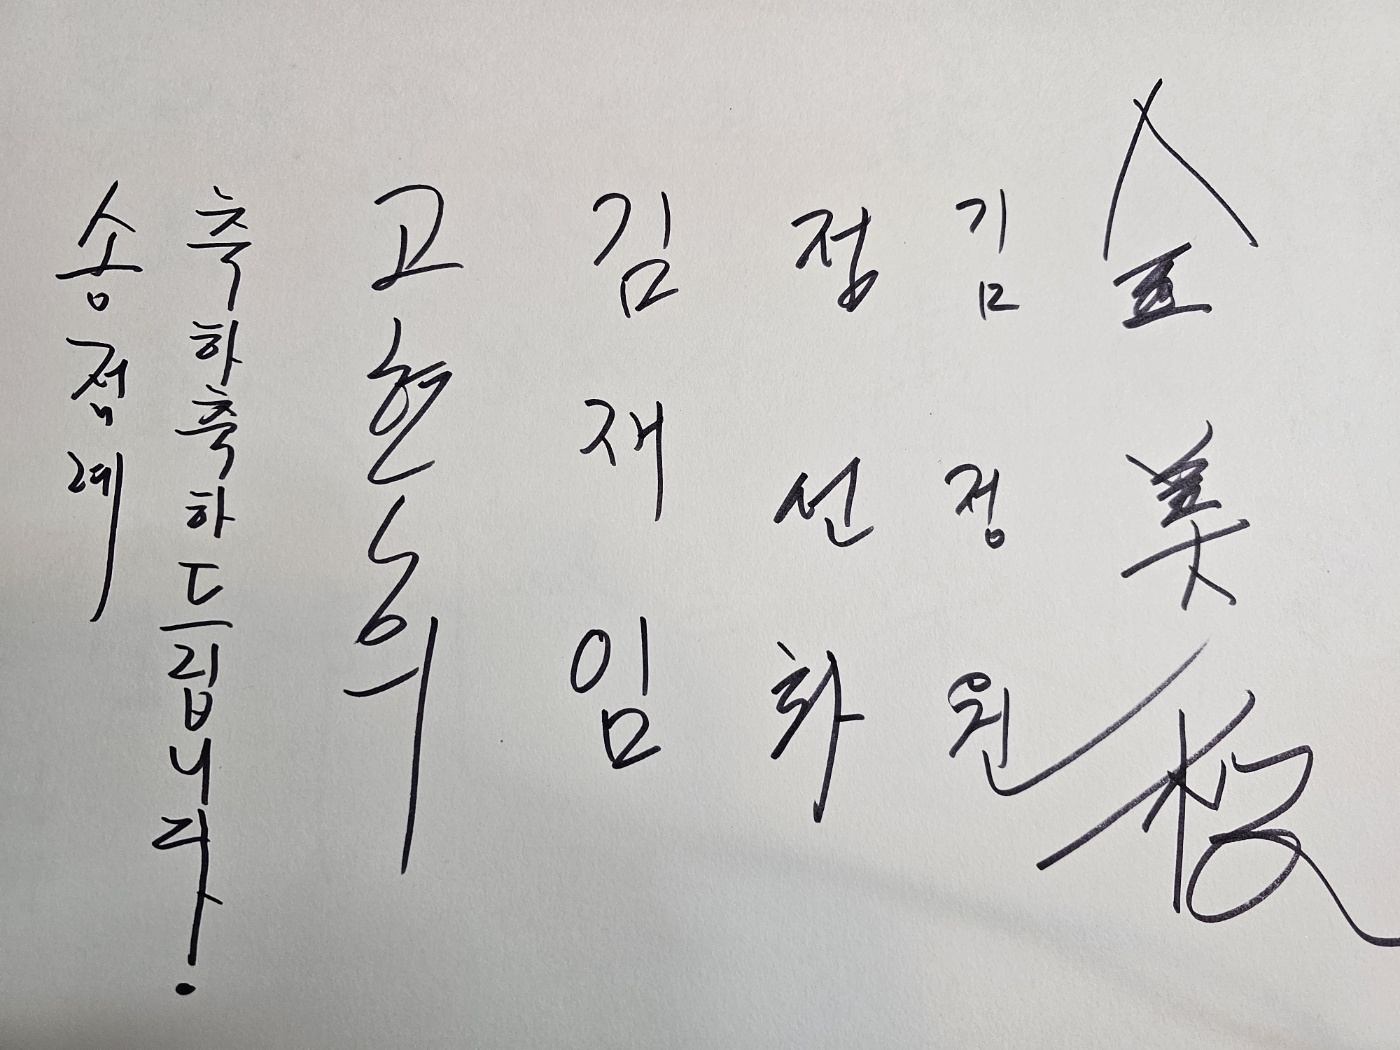 金美
김정원
정선화
김재임
고현
축하축하드립니다.
송점례